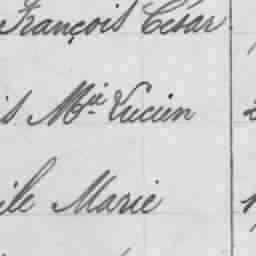 François César
is Mie Lucien
ile Marie